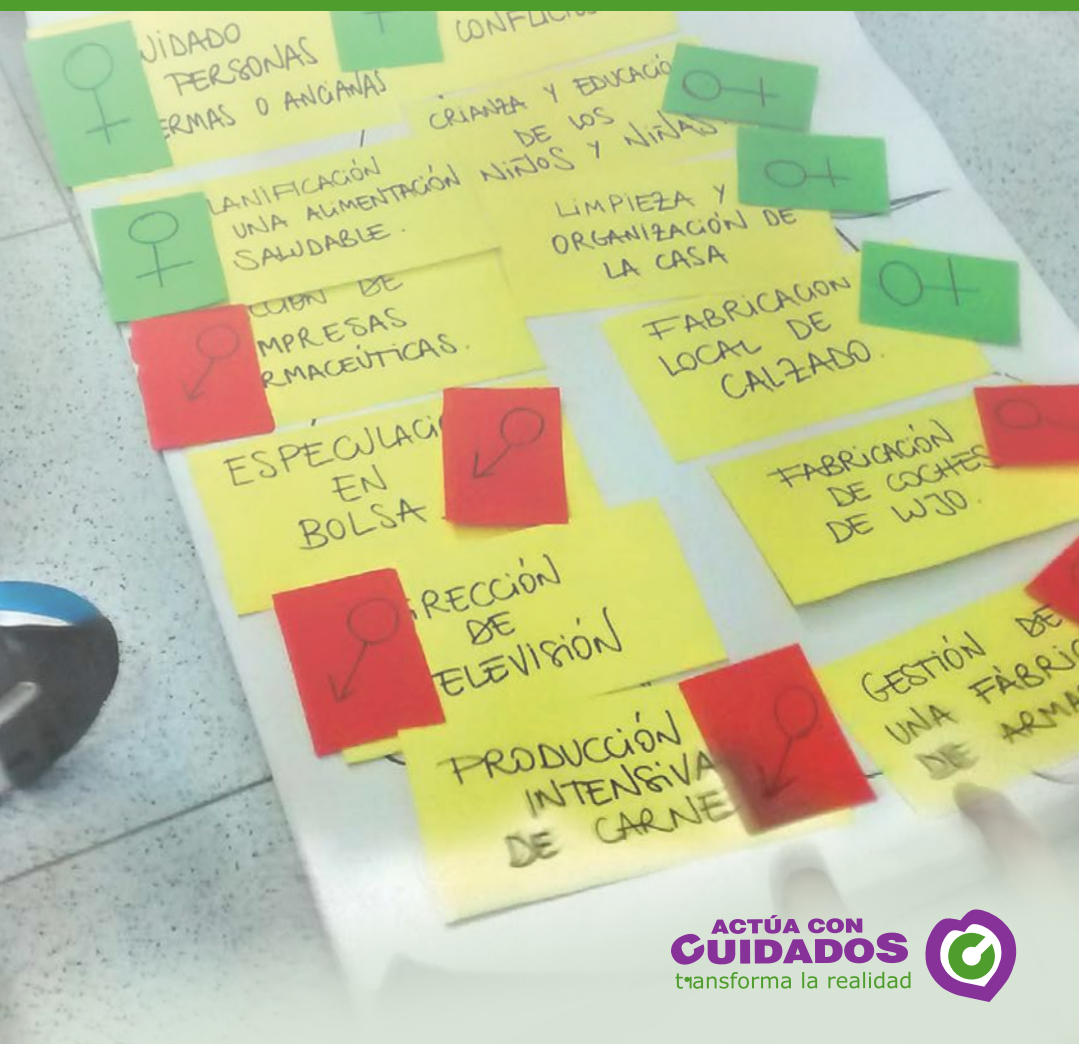 UIDADO
PERSONAS
ERMAS O ANCIANAS
CONFLICTOS
CRIANZA Y EDUCACIÓ
DE LOS
NIÑOS Y NIÑAS
LANIFICACIÓN
UNA ALIMENTACIÓN
SALUDABLE.
LIMPIEZA Y
ORGANIZACIÓN DE
LA CASA
CCIÓN DE
MPRESAS
RMACEÚTICAS.
FABRICACIÓN
LOCAL DE
CALZADO.
ESPECULACI
EN
BOLSA
FABRICACIÓN
DE COCHES
DE LUJO.
RECCIÓN
DE
ELEVISIÓN
GESTIÓN DE
UNA FÁBRIC
DE ARMA
PRODUCCIÓN
INTENSIVA
DE CARNE
ACTÚA CON
CUIDADOS
transforma la realidad